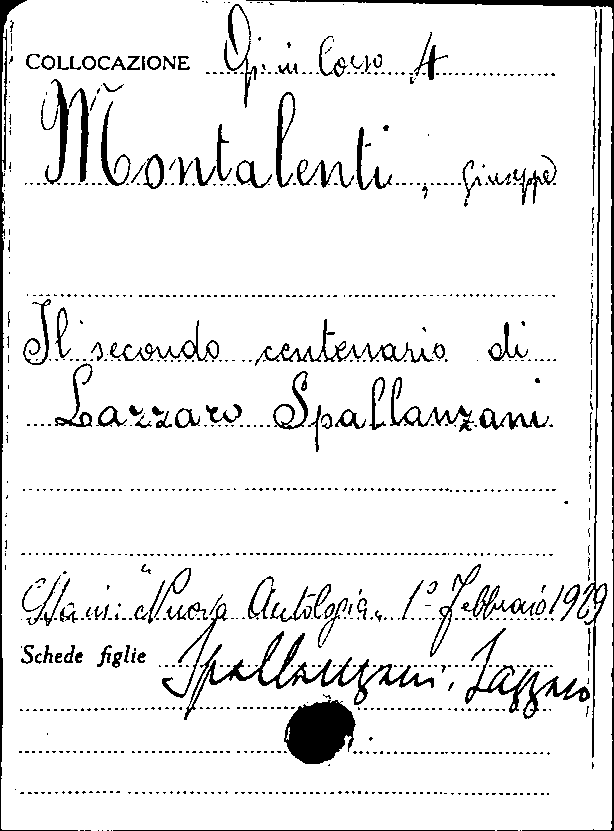 COLLOCAZIONE Op. in Corso A
Montalenti, Giuseppe
Il secondo centenario di
Lazzaro Spallanzani
Sta in: "Nuova Antologia" 1º Febbraio 1929
Schede figlie Spallanzani, Lazzaro